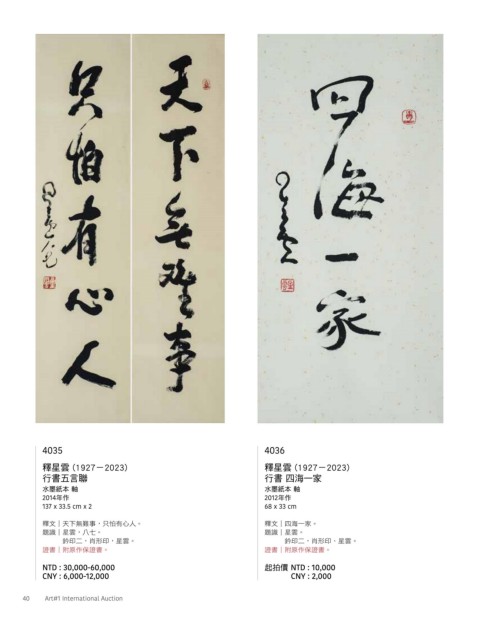 天下無難事
只怕有心人
星雲八七
四海一家
星雲
4035
釋星雲 (1927－2023)
行書五言聯
水墨紙本 軸
2014年作
137 x 33.5 cm x 2
釋文｜天下無難事，只怕有心人。
題識｜星雲，八七。
鈐印二。肖形印，星雲。
證書｜附原作保證書。
NTD : 30,000-60,000
CNY : 6,000-12,000
4036
釋星雲 (1927－2023)
行書 四海一家
水墨紙本 軸
2012年作
68 x 33 cm
釋文｜四海一家。
題識｜星雲。
鈐印二。肖形印，星雲。
證書｜附原作保證書。
起拍價 NTD : 10,000
CNY : 2,000
40 Art#1 International Auction